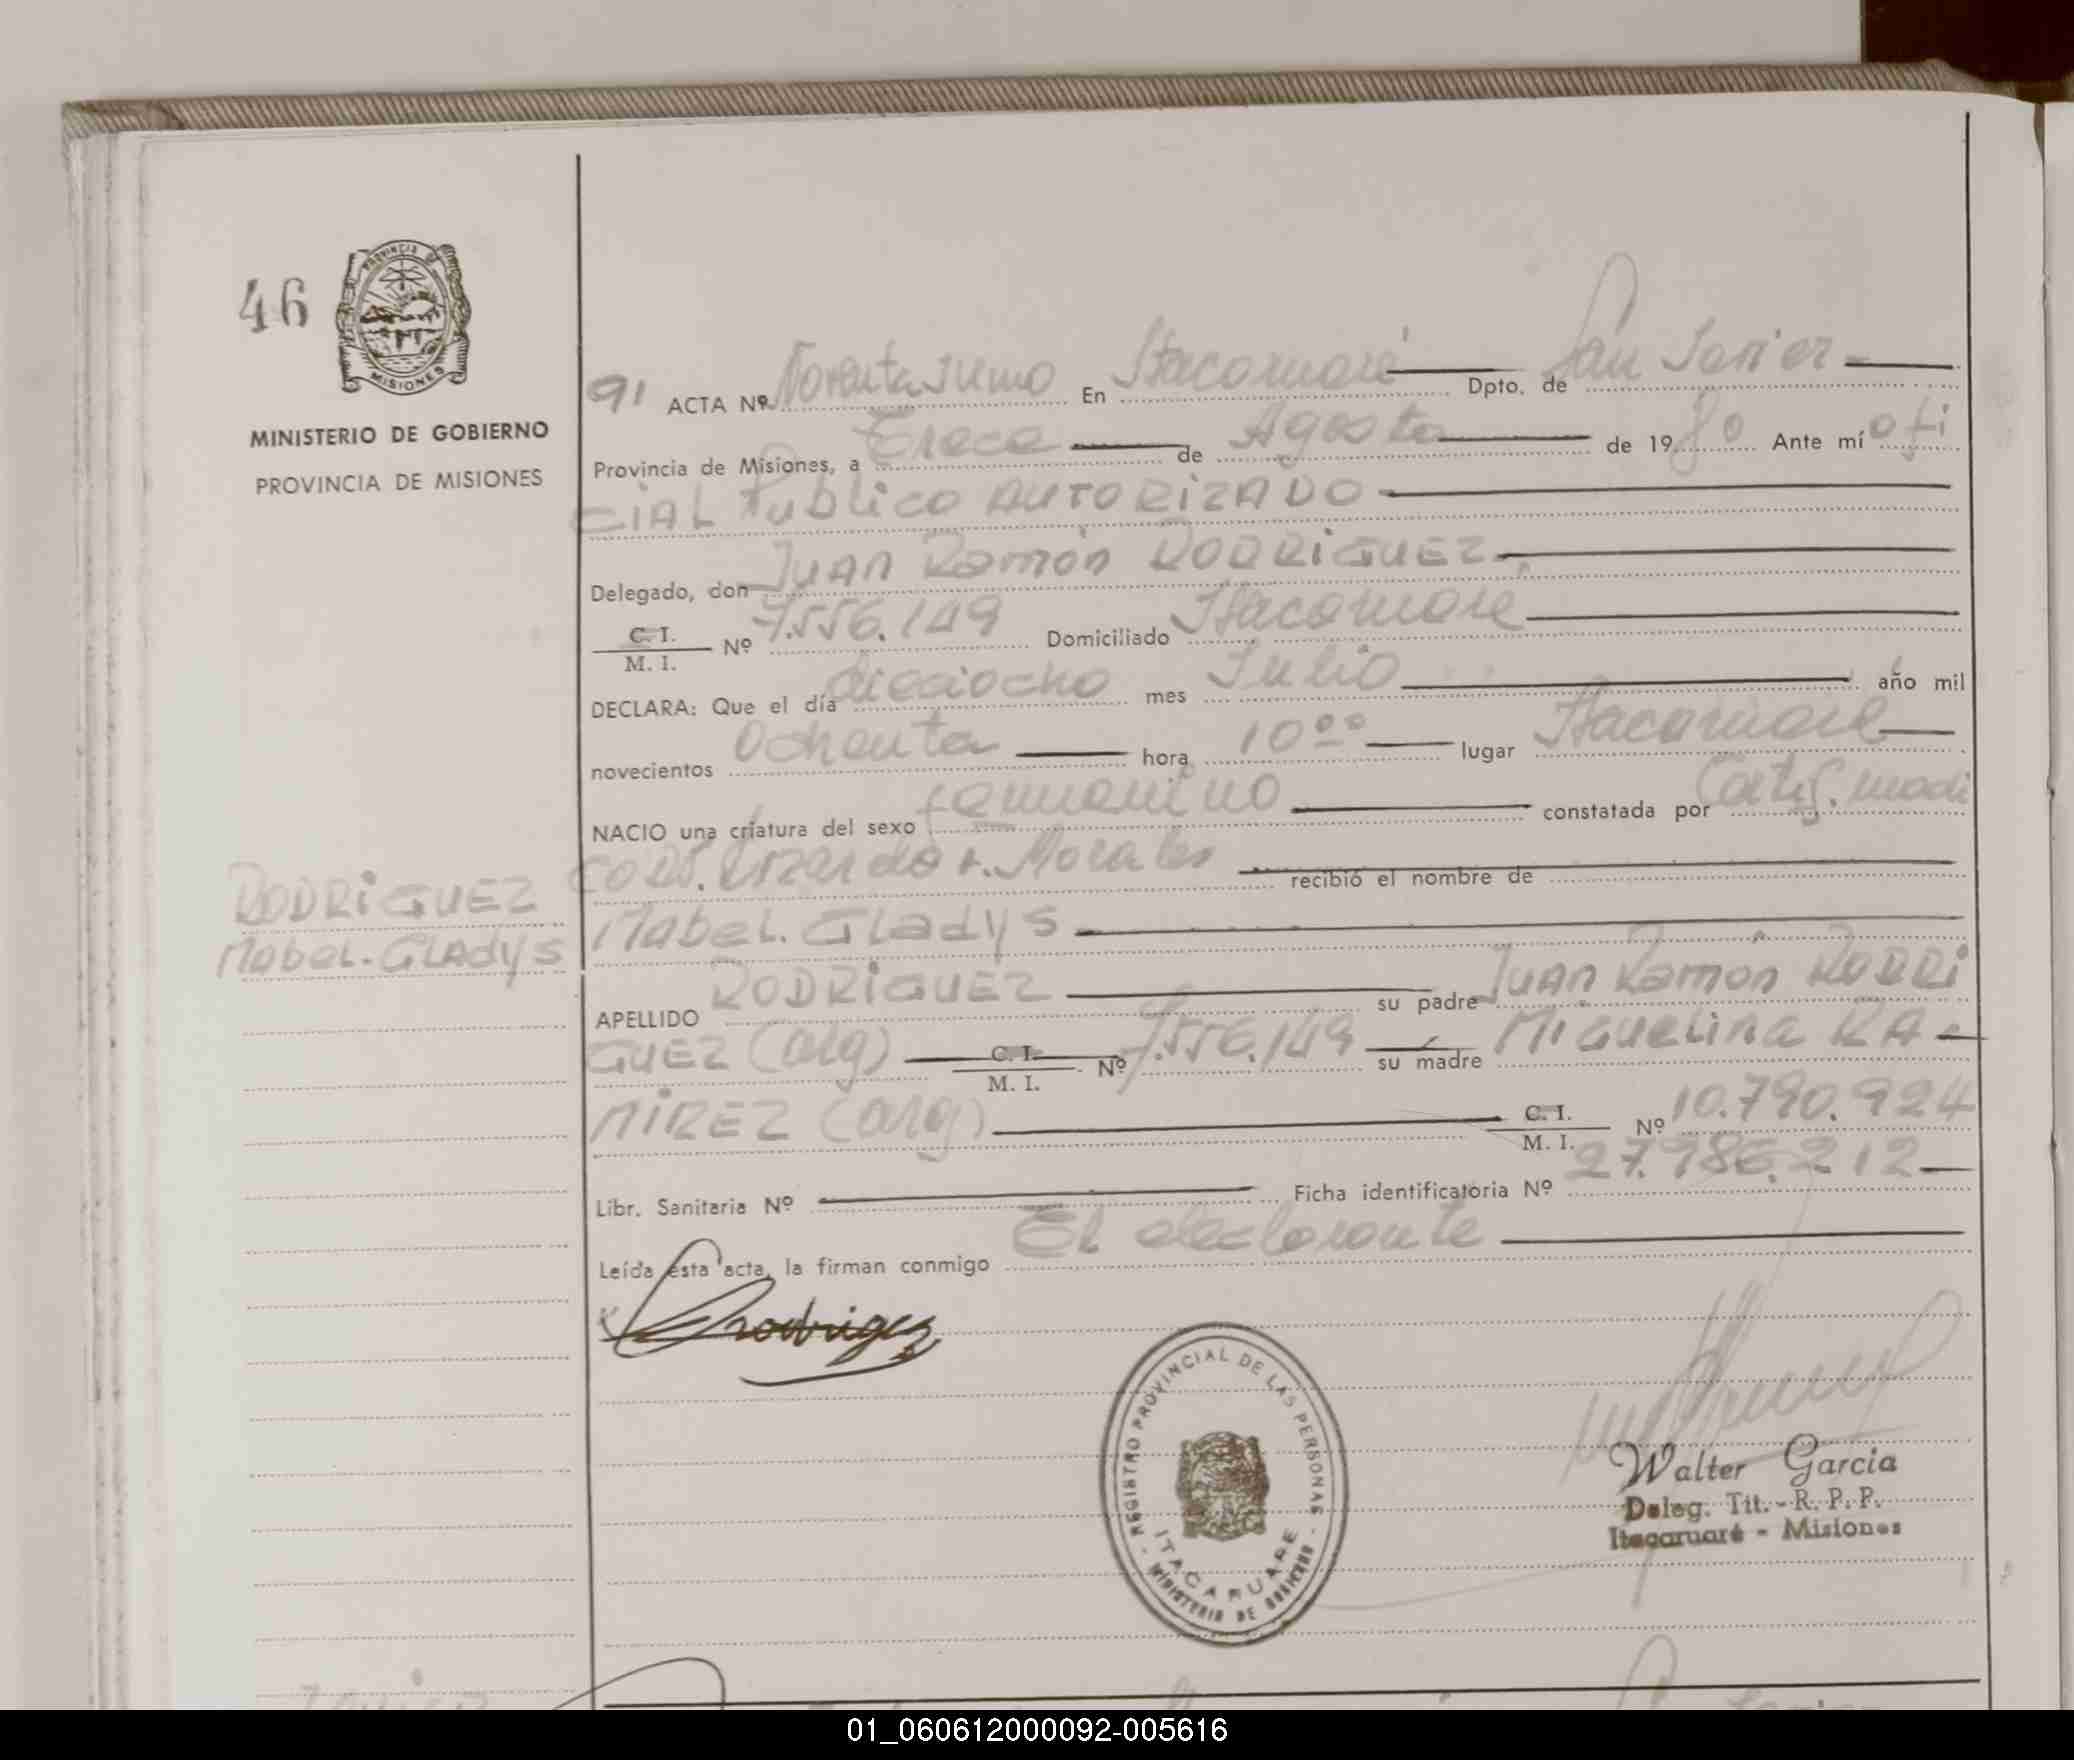 46
PROVINCIA DE
MISIONES
MINISTERIO DE GOBIERNO
PROVINCIA DE MISIONES
91 ACTA Nº Noventa y uno En Itacaruaré Dpto. de San Javier
Provincia de Misiones, a Trece de Agosto de 19 80 Ante mí ofi
CIAL Publico AUTORIZADO
Delegado, don JUAN Ramón RODRIGUEZ
C. I.
M. I. Nº 7.556.149 Domiciliado Itacaruare
DECLARA: Que el día dieciocho mes Julio año mil
novecientos Ochenta hora 10 ºº lugar Itacaruare
NACIO una criatura del sexo femenino constatada por Certif. medi
co Lizardo Morales recibió el nombre de
RODRIGUEZ
Mabel. GLADYS
Mabel. GladyS
APELLIDO RODRIGUEZ su padre JUAN Ramón RODRI
GUEZ (arg) C. I.
M. I. Nº 7.556.149 su madre MiGUELina RA-
MIREZ (arg) C. I.
M. I. Nº 10.790.924
Libr. Sanitaria Nº Ficha identificatoria Nº 27.986.212
Leída esta acta, la firman conmigo El declarante
Rodriguez
REGISTRO PROVINCIAL DE LAS PERSONAS
ITACARUARE
MINISTERIO DE GOBIERNO
Walter Garcia
Deleg. Tit. - R. P. P.
Itacaruaré - Misiones
01_060612000092-005616